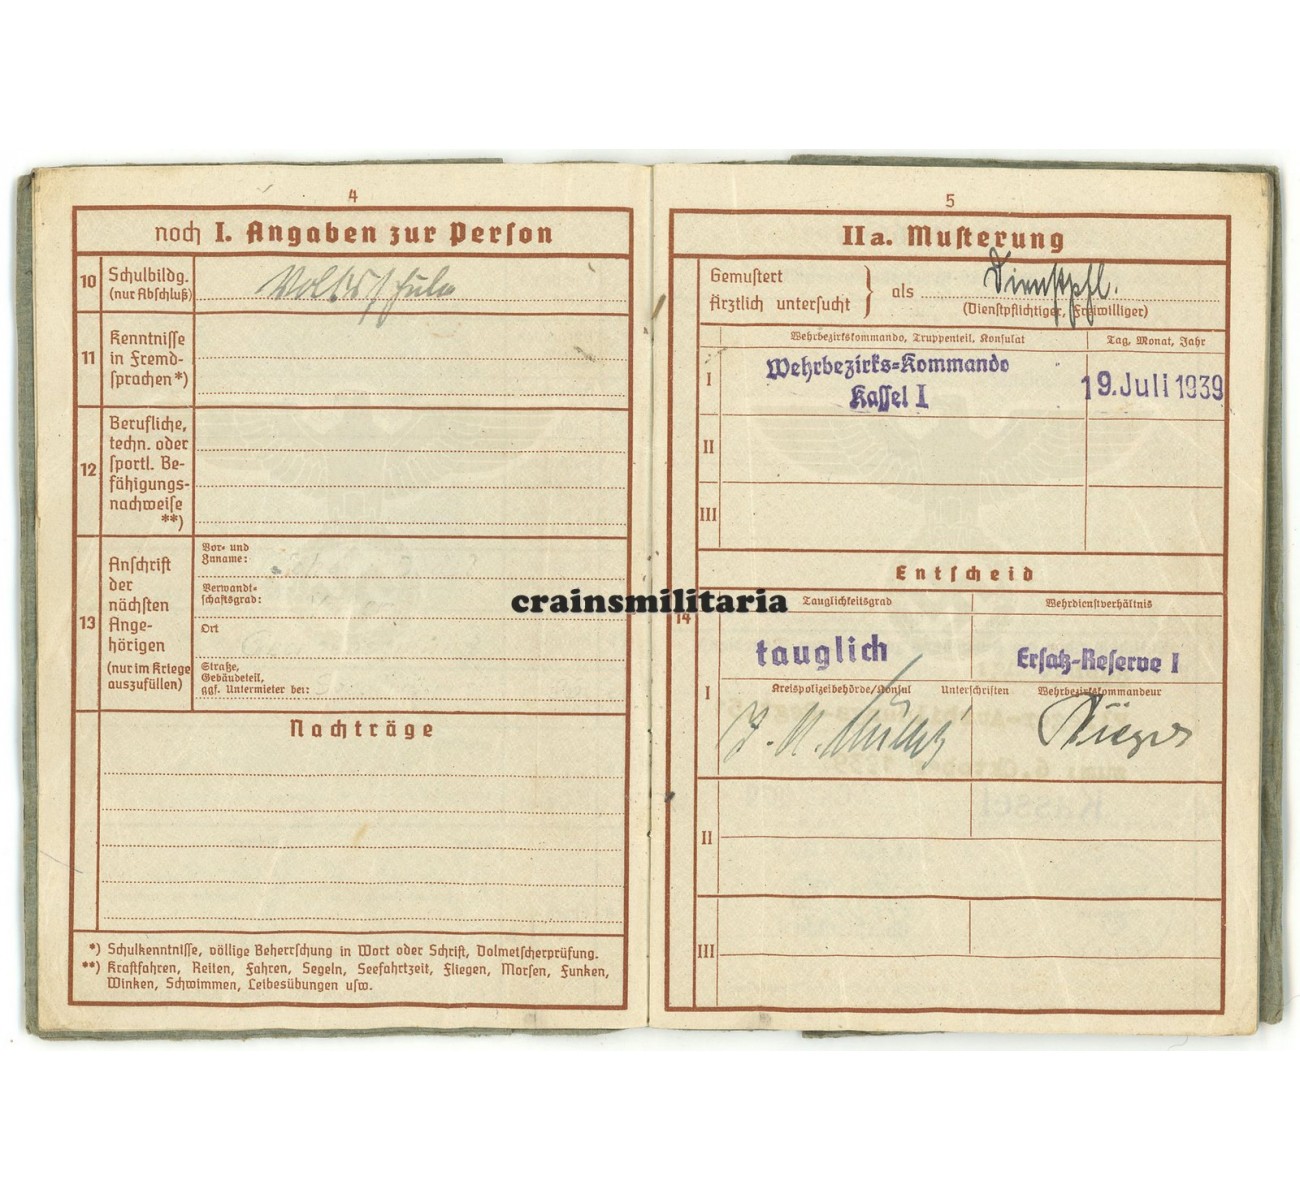 4
noch I. Angaben zur Person
10
Schulbildg.
(nur Abschluß)
Volksschule
11
Kenntnisse
in Fremd-
sprachen*)
12
Berufliche,
techn. oder
sportl. Be-
fähigungs-
nachweise
**)
13
Anschrift
der
nächsten
Ange-
hörigen
(nur im Kriege
auszufüllen)
Vor- und
Zuname:
Verwandt-
schaftsgrad:
Ort
Straße,
Gebäudeteil,
ggf. Untermieter bei:
Nachträge
*) Schulkenntnisse, völlige Beherrschung in Wort oder Schrift, Dolmetscherprüfung.
**) Kraftfahren, Reiten, Fahren, Segeln, Seefahrtzeit, Fliegen, Morsen, Funken,
Winken, Schwimmen, Leibesübungen usw.
5
IIa. Musterung
Gemustert
Ärztlich untersucht } als Dienstpfl.
(Dienstpflichtiger, Freiwilliger)
Wehrbezirkskommando, Truppenteil, Konsulat
Tag, Monat, Jahr
I
Wehrbezirks-Kommando
Kassel I
19. Juli 1939
II
III
Entscheid
14
Tauglichkeitsgrad
Wehrdienstverhältnis
tauglich
Ersatz-Reserve I
I
Kreispolizeibehörde/Konsul Unterschriften Wehrbezirkskommandeur
II
III
crainsmilitaria